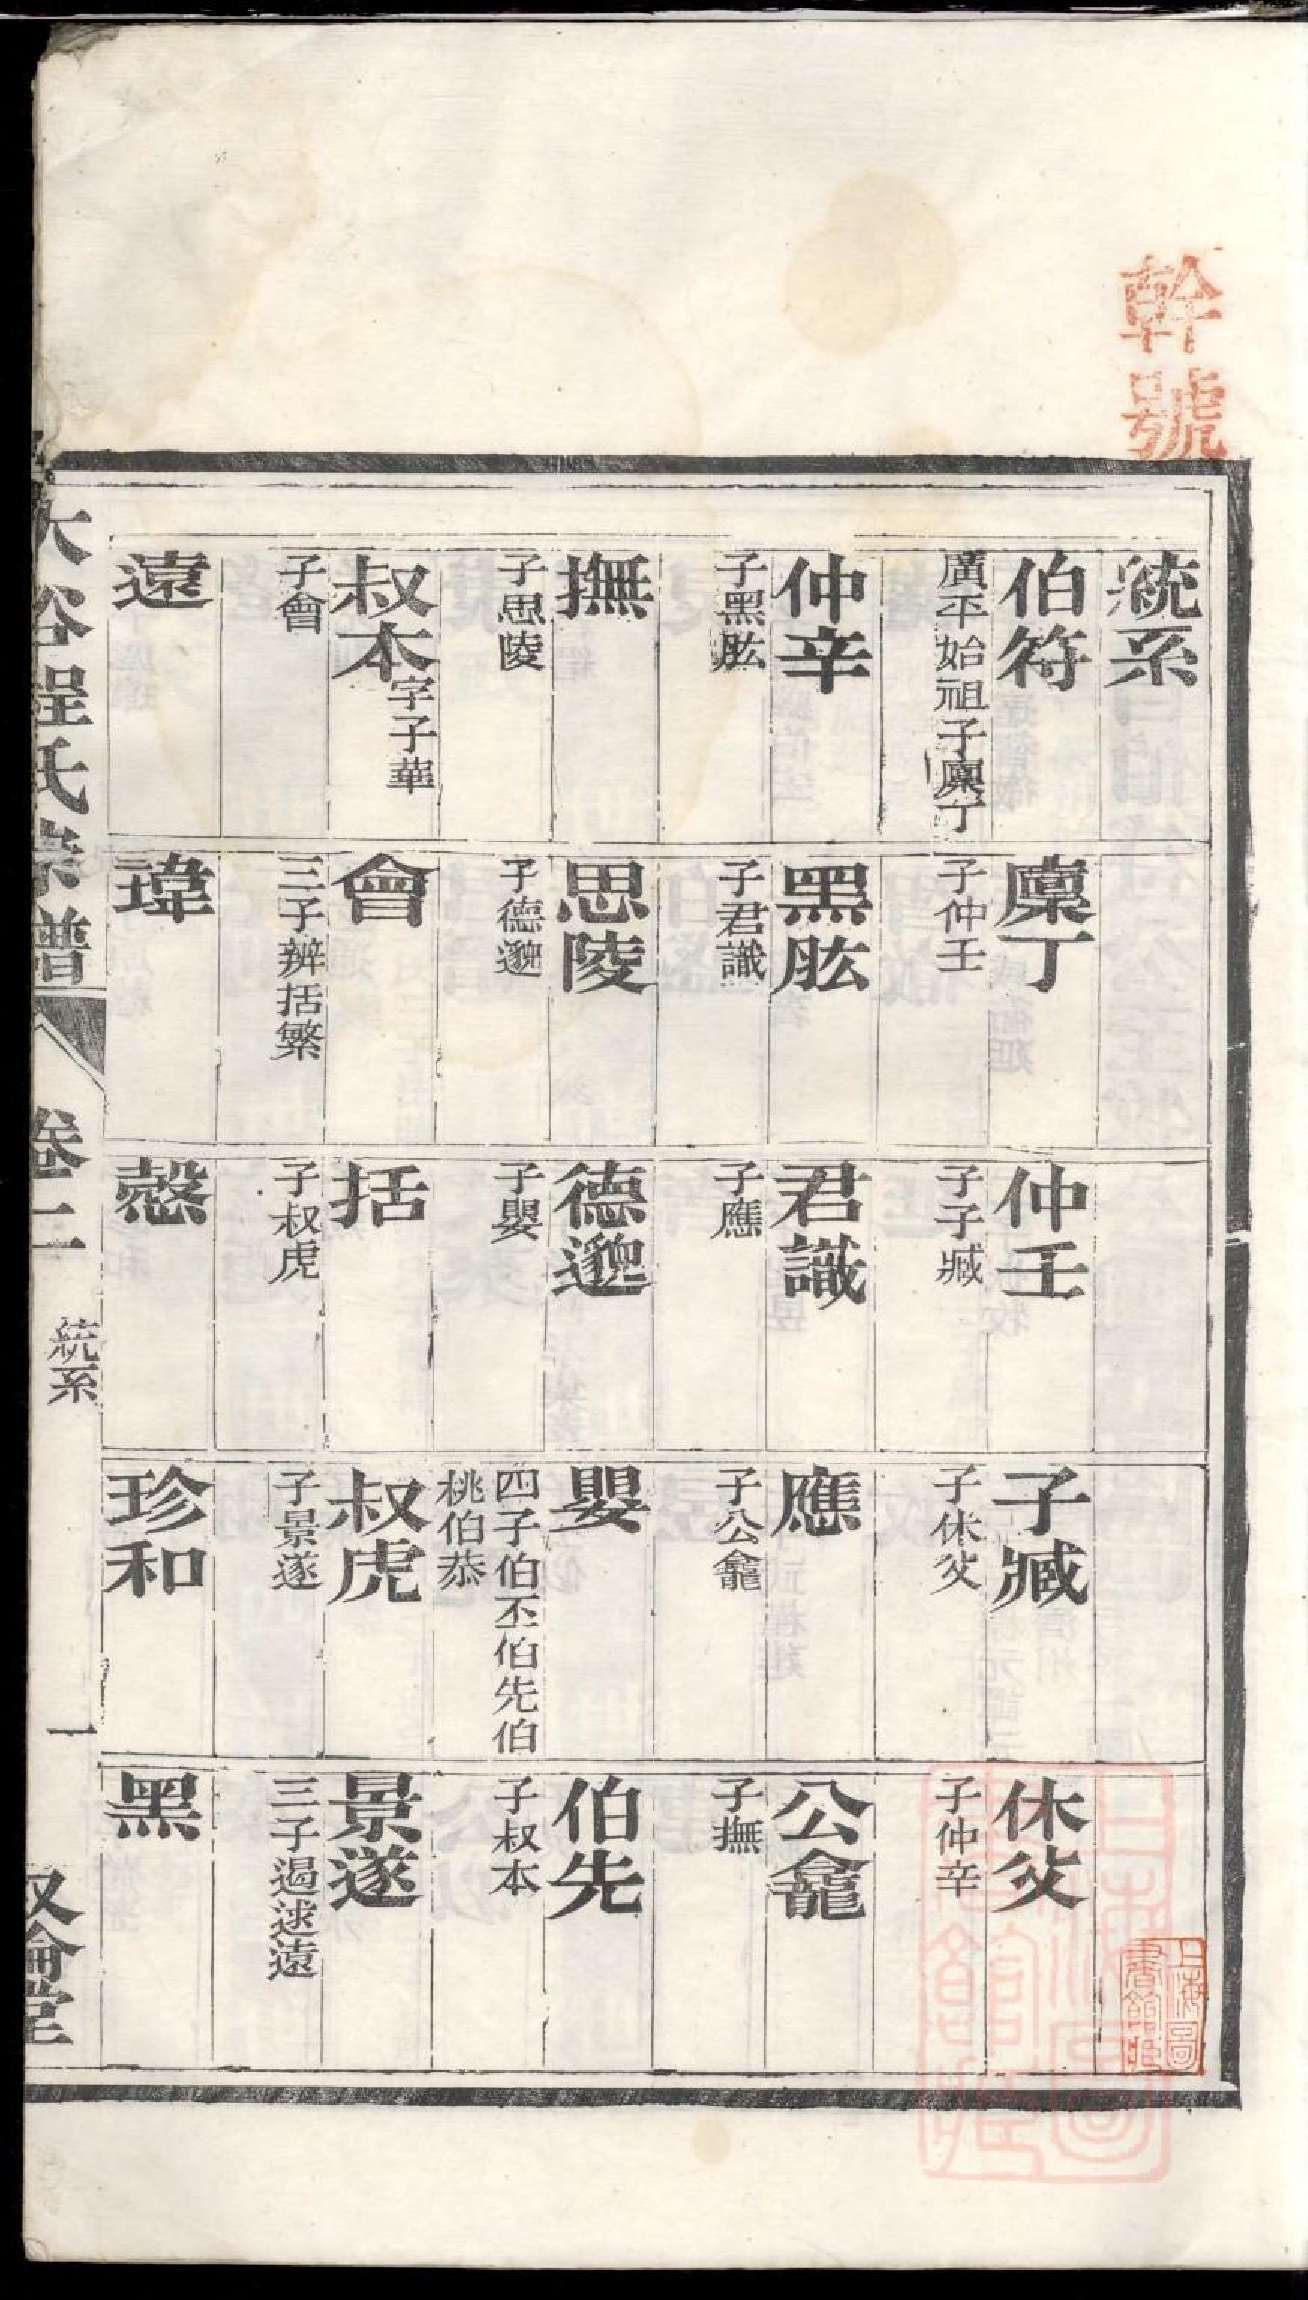 幹號
統系
伯符
廣平始祖子廩丁
仲辛
子黑肱
撫
子思陵
叔本字子華
子會
遠
廩丁
子仲壬
黑肱
子君識
思陵
子德邈
會
三子辨括繁
瑋
仲壬
子子臧
君識
子應
德邈
子嬰
括
子叔虎
愨
子臧
子休父
應
子公龕
嬰
四子伯丕伯先伯
桃伯恭
叔虎
子景遂
珍和
休父
子仲辛
公龕
子撫
伯先
子叔本
景遂
三子遏逑遠
黑
大谷程氏宗譜
卷二
統系
一
叙倫堂
上海圖書館藏